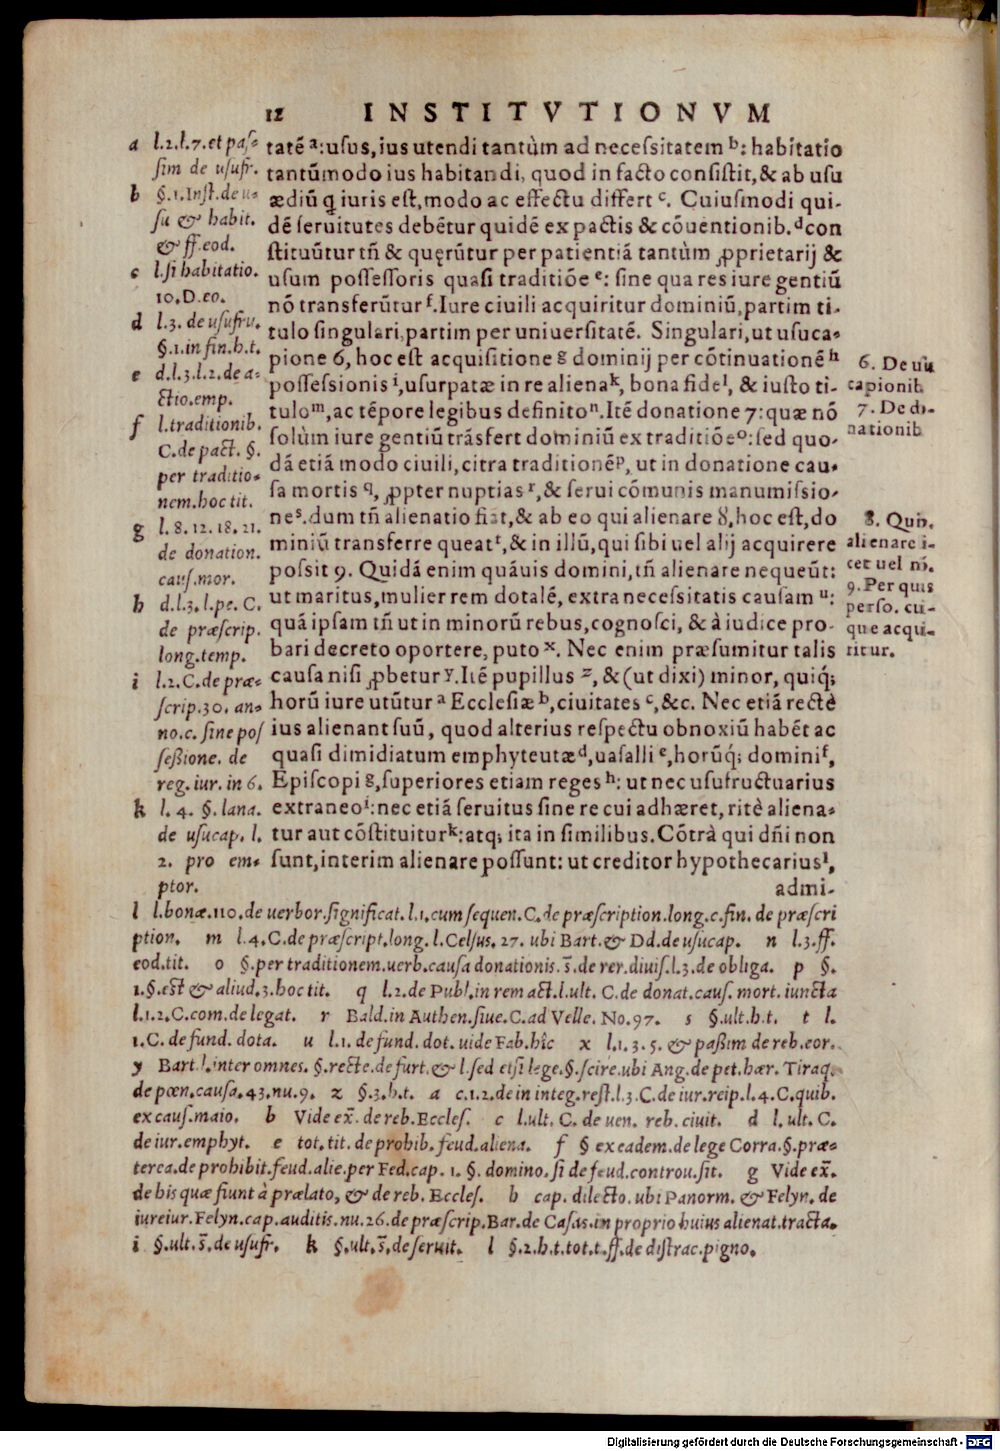 12 INSTITVTIONVM
a l.2.l.7.et paſ-
ſim de uſufr.
b §.1.Inſt.de u-
ſu & habit.
& ff.eod.
c l.ſi habitatio.
10.D.eo.
d l.3. de uſufru.
§.1.in fin.h.t.
e d.l.3.l.2.de a-
ctio.emp.
f l.traditionib.
C.de pact. §.
per traditio-
nem.hoc tit.
g l. 8. 12. 18. 21.
de donation.
cauſ.mor.
h d.l.3. l.pe. C.
de præſcrip.
long.temp.
i l.2.C.de præ-
ſcrip.30. an-
no.c. ſine poſ
ſeßione. de
reg.iur. in 6.
k l. 4. §. lana.
de uſucap. l.
2. pro em-
ptor.
tatē ᵃ: uſus, ius utendi tantùm ad neceſsitatem ᵇ: habitatio
tantūmodo ius habitandi, quod in facto conſiſtit,& ab uſu
ædiū ꝗ iuris eſt,modo ac effectu differt ᶜ. Cuiuſmodi qui-
dē ſeruitutes debētur quidē ex pactis & cōuentionib. ᵈcon
ſtituūtur tn̄ & quęrūtur per patientiā tantùm ꝓprietarij &
uſum poſſeſſoris quaſi traditiōe ᵉ: ſine qua res iure gentiū
nō transferūtur ᶠ.Iure ciuili acquiritur dominiū,partim ti-
tulo ſingulari,partim per uniuerſitatē. Singulari,ut uſuca-
pione 6, hoc eſt acquiſitione ᵍ dominij per cōtinuationē ʰ
poſſeſsionis ⁱ,uſurpatæ in re aliena ᵏ, bona fide ˡ, & iuſto ti-
tulo ᵐ,ac tēpore legibus definito ⁿ.Itē donatione 7: quæ nō
ſolùm iure gentiū trāsfert dominiū ex traditiōe ᵒ: ſed quo-
dā etiā modo ciuili, citra traditionē ᵖ, ut in donatione cau-
ſa mortis ᑫ, ꝓpter nuptias ʳ,& ſerui cōmunis manumiſsio-
ne ˢ.dum tn̄ alienatio fiat,& ab eo qui alienare 8,hoc eſt,do
miniū transferre queat ᵗ,& in illū,qui ſibi uel alij acquirere
poſsit 9. Quidā enim quāuis domini,tn̄ alienare nequeūt:
ut maritus,mulier rem dotalē, extra neceſsitatis cauſam ᵘ:
quā ipſam tn̄ ut in minorū rebus,cognoſci, & à iudice pro-
bari decreto oportere, puto ˣ. Nec enim præſumitur talis
cauſa niſi ꝓbetur ʸ.Itē pupillus ᶻ, &(ut dixi) minor, quiq́;
horū iure utūtur ᵃ Eccleſiæ ᵇ,ciuitates ᶜ, &c. Nec etiā rectè
ius alienant ſuū, quod alterius reſpectu obnoxiū habēt ac
quaſi dimidiatum emphyteutæ ᵈ,uaſalli ᵉ,horūq́; domini ᶠ,
Epiſcopi ᵍ,ſuperiores etiam reges ʰ: ut nec uſufructuarius
extraneo ⁱ: nec etiā ſeruitus ſine re cui adhæret, ritè aliena-
tur aut cōſtituitur ᵏ: atq; ita in ſimilibus. Cōtrà qui dn̄i non
ſunt,interim alienare poſſunt: ut creditor hypothecarius ˡ,
admi-
6. De uſu
capionib
7. De do-
nationib
8. Quib.
alienare i-
cet uel nō.
9. Per quas
perſo. cui-
que acqui-
ritur.
l l.bonæ.110.de uerbor.ſignificat.l.1.cum ſequen.C.de præſcription.long.c.fin. de præſcri
ption. m l.4.C.de præſcript.long. l.Celſus. 27. ubi Bart.& Dd.de uſucap. n l.3.ff.
eod.tit. o §.per traditionem.uerb.cauſa donationis. s̄.de rer.diuiſ.l.3.de obliga. p §.
1.§.eſt & aliud.3.hoc tit. q l.2.de Publ.in rem act.l.ult. C.de donat.cauſ. mort. iuncta
l.1.2.C.com.de legat. r Bald.in Authen.ſiue.C.ad Velle. No.97. s §.ult.h.t. t l.
1.C.de fund. dota. u l.1. de fund. dot. uide Fab.hîc x l.1.3.5. & paßim de reb.eor.
y Bart.l.inter omnes. §.recte.de furt.& l.ſed etſi lege.§.ſcire.ubi Ang.de pet.hær. Tiraq.
de pœn.cauſa.43.nu.9. z §.3.h.t. a c.1.2.de in integ.reſt.l.3.C.de iur.reip.l.4.C.quib.
ex cauſ.maio. b Vide ex̄. de reb.Eccleſ. c l.ult. C. de uen. reb. ciuit. d l. ult. C.
de iur.emphyt. e tot.tit. de prohib.feud.aliena. f § ex eadem.de lege Corra.§.præ-
terea.de prohibit.feud.alie.per Fed.cap. 1. §. domino. ſi de feud.controu.ſit. g Vide ex̄.
de his quæ fiunt à prælato, & de reb. Eccleſ. h cap. dilecto. ubi Panorm. & Felyn. de
iureiur.Felyn.cap.auditis.nu.26.de præſcrip.Bar.de Caſas.in proprio huius alienat.tracta.
i §.ult.s̄.de uſufr. k §.ult.s̄.de ſeruit. l §.2.h.t.tot.t.ff.de diſtrac.pigno.
Digitalisierung gefördert durch die Deutsche Forschungsgemeinschaft - DFG